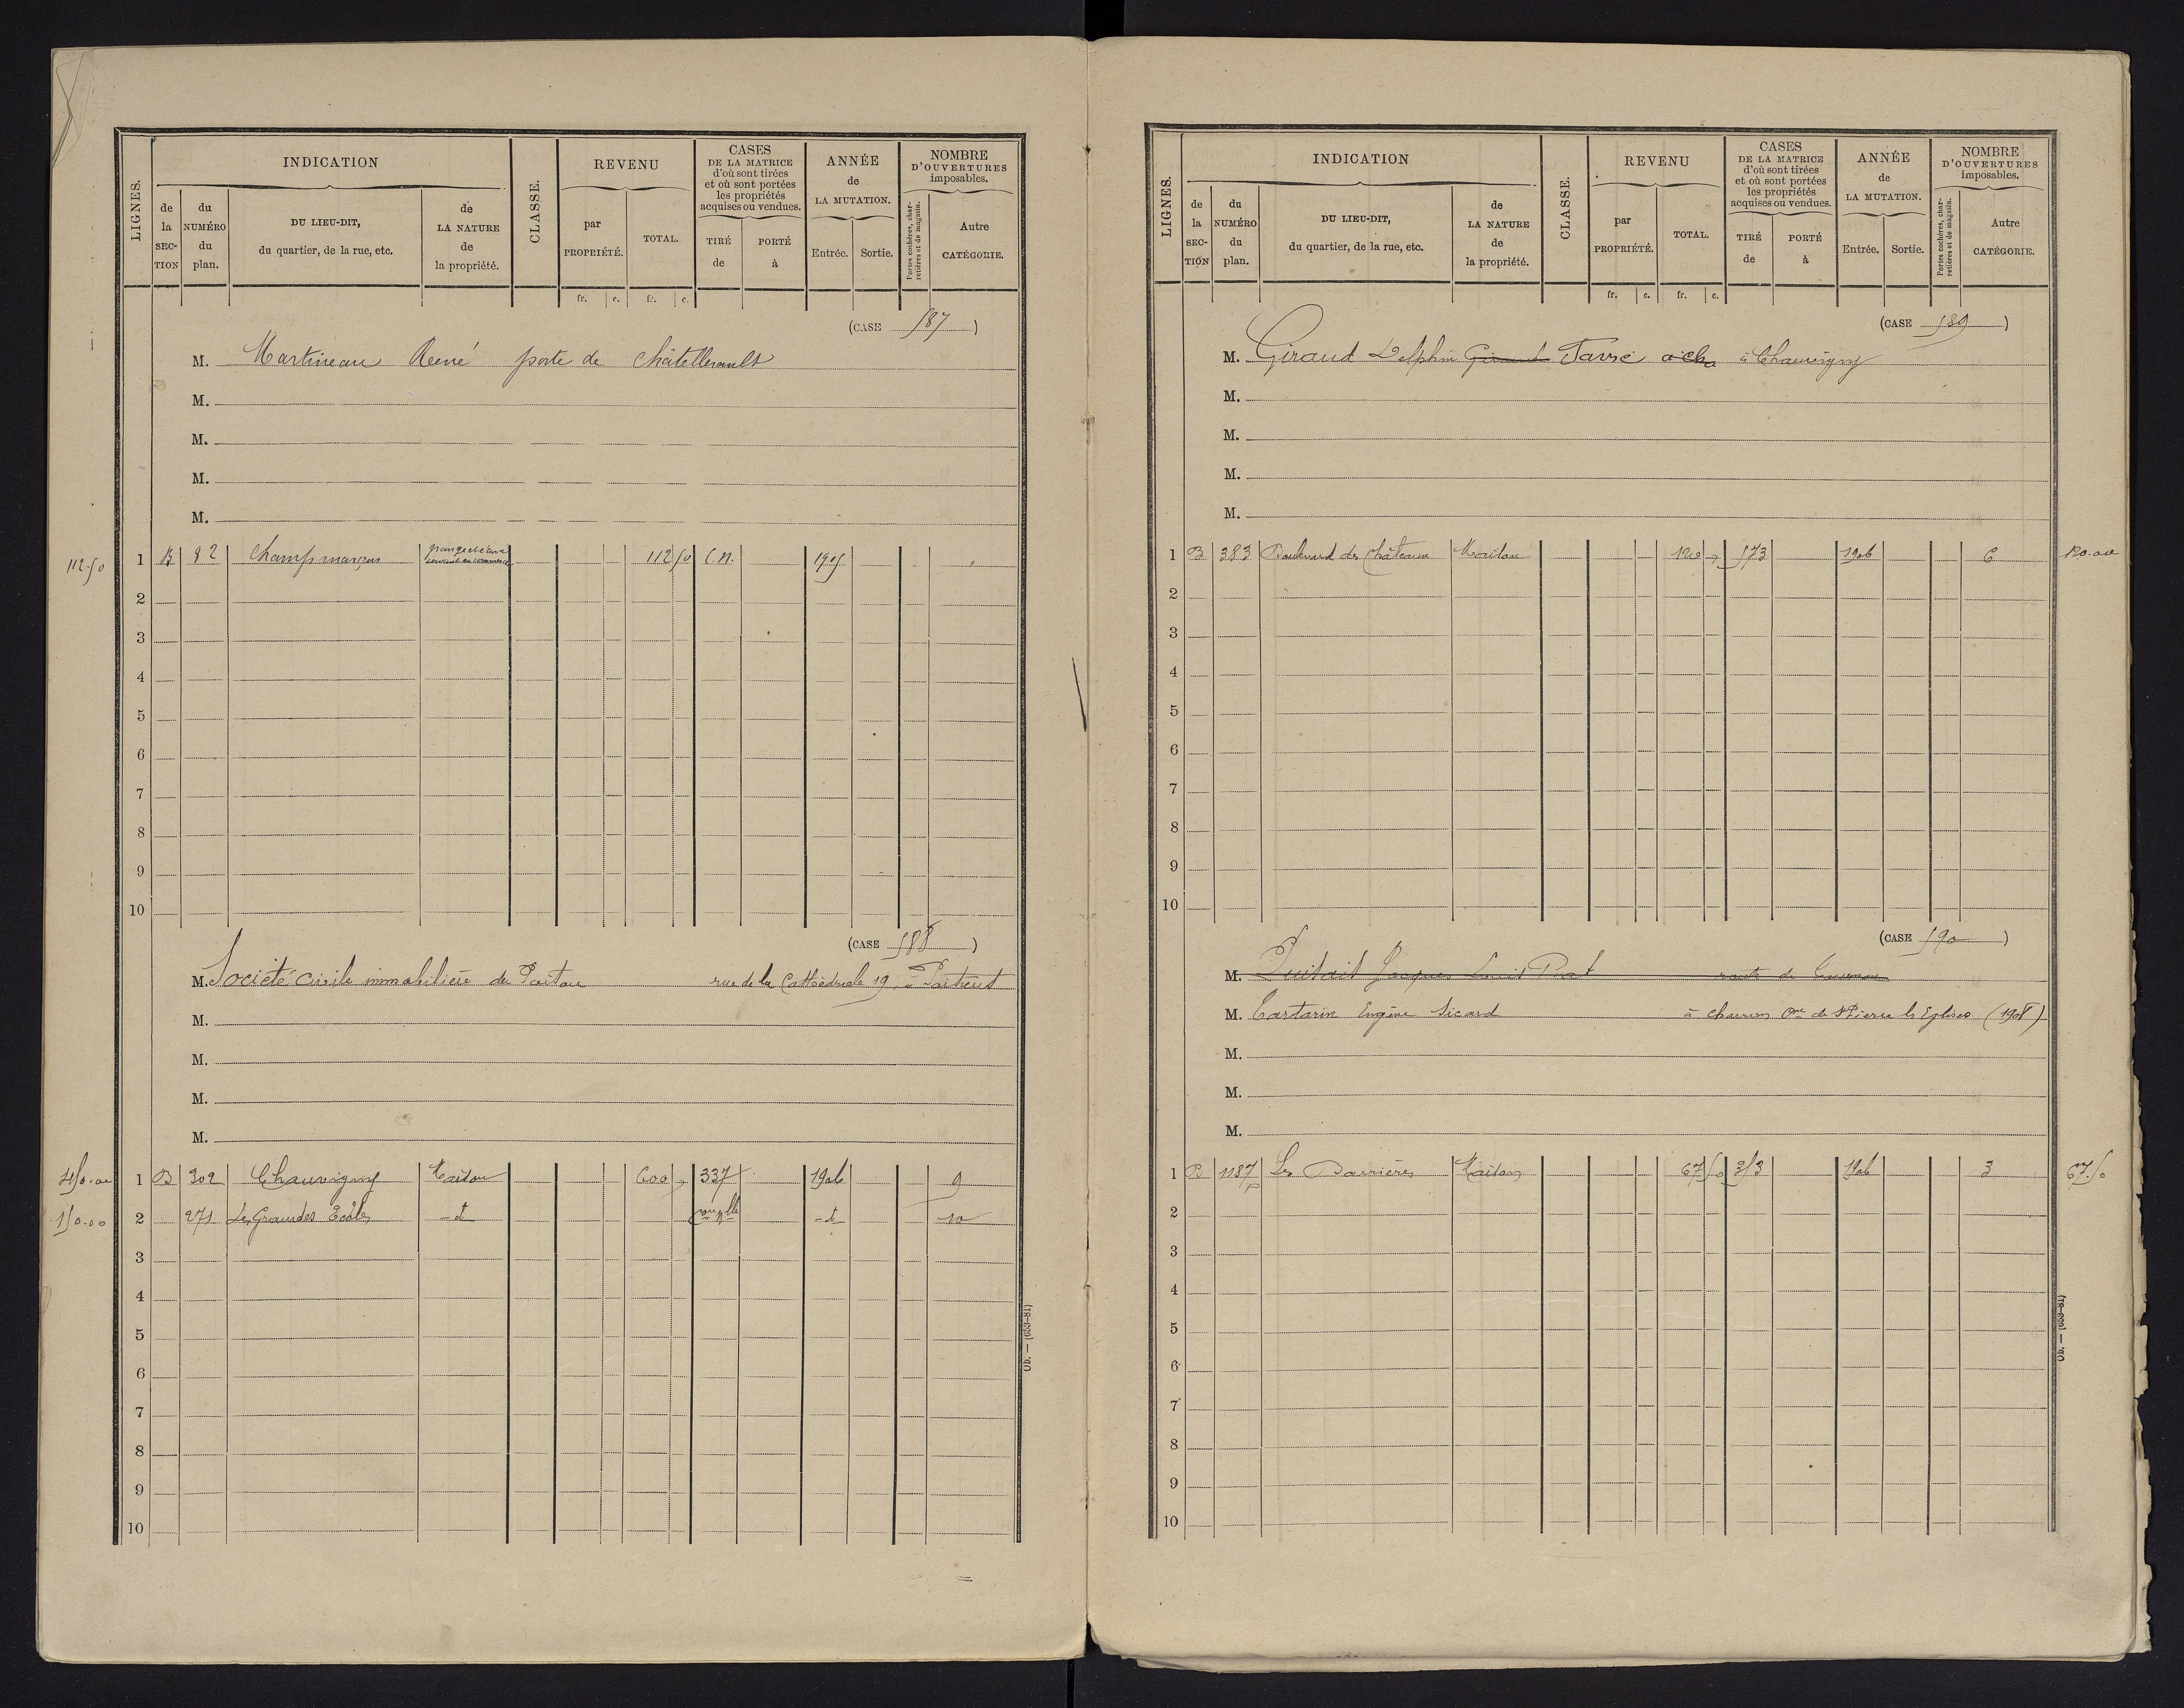 LIGNES.
INDICATION
de la SECTION
du NUMÉRO du plan.
DU LIEU-DIT, du quartier, de la rue, etc.
de LA NATURE de la propriété.
CLASSE.
REVENU
par PROPRIÉTÉ.
TOTAL.
fr. c. fr. c.
CASES DE LA MATRICE d'où sont tirées et où sont portées les propriétés acquises ou vendues.
TIRÉ de
PORTÉ à
ANNÉE de LA MUTATION.
Entrée. Sortie.
NOMBRE D'OUVERTURES imposables.
Portes cochères, charretières et de magasin.
Autre CATÉGORIE.
(CASE 587)
M. Martineau René porte de Châtellerault
M.
M.
M.
M.
112.50 1 B 82 Champ marçus grange et cave servant au commerce 112 50 C.N. 1905 "
2
3
4
5
6
7
8
9
10
(CASE 588)
M. Société civile immobilière du Poitou rue de la Cathédrale 19 à Poitiers
M.
M.
M.
M.
450.00 1 B 302 Chauvigny Maison 600 " 337 1906 9
150.00 2 271 Les Grandes Ecoles - d - - d - 10
3
4
5
6
7
8
9
10
Ob. — (653-81)
LIGNES.
INDICATION
de la SECTION
du NUMÉRO du plan.
DU LIEU-DIT, du quartier, de la rue, etc.
de LA NATURE de la propriété.
CLASSE.
REVENU
par PROPRIÉTÉ.
TOTAL.
fr. c. fr. c.
CASES DE LA MATRICE d'où sont tirées et où sont portées les propriétés acquises ou vendues.
TIRÉ de
PORTÉ à
ANNÉE de LA MUTATION.
Entrée. Sortie.
NOMBRE D'OUVERTURES imposables.
Portes cochères, charretières et de magasin.
Autre CATÉGORIE.
(CASE 589)
M. Giraud Delphin Giraud Favre à cha à Chauvigny
M.
M.
M.
M.
1 B 383 Boulevard des Châteaux Maison 120 " 573 1906 6 120.00
2
3
4
5
6
7
8
9
10
(CASE 590)
M. Jacques Louis route de
M. Tartarin Eugène Sicard à Cne de St Pierre les Eglises (1908)
M.
M.
M.
1 B 1187 p Les Barrières Maison 67 50 353 1906 3 67.50
2
3
4
5
6
7
8
9
10
Ob. — (653-81)